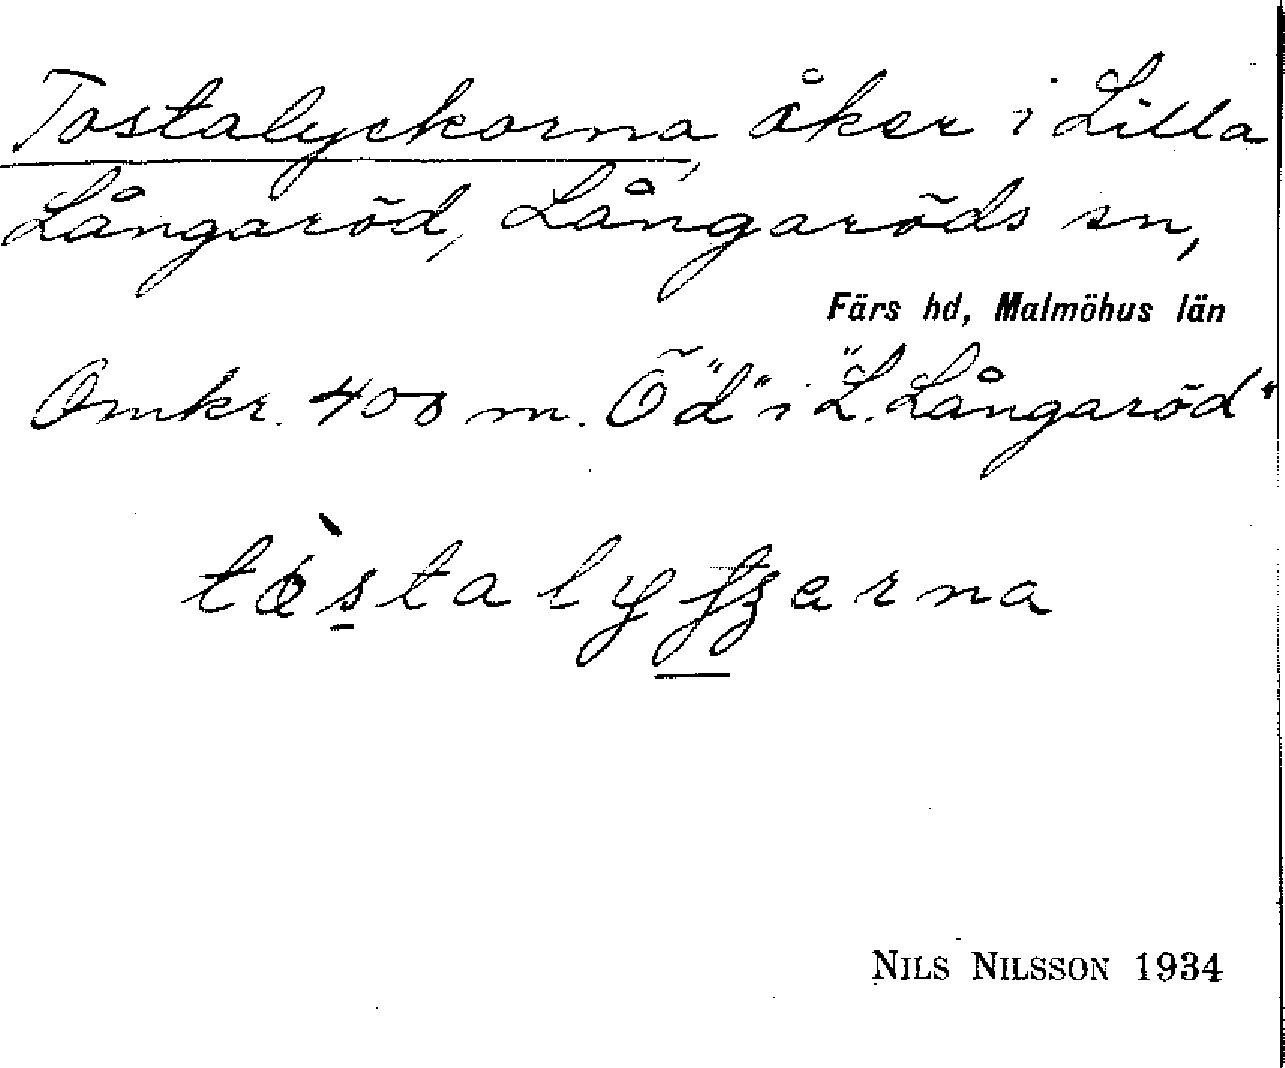 Tostalyckorna, åker i Lilla
Långaröd, Långaröds sn,
Färs hd, Malmöhus län
Omkr. 400 m. Ö "d" i "L. Långaröd"
NILS NILSSON 1934